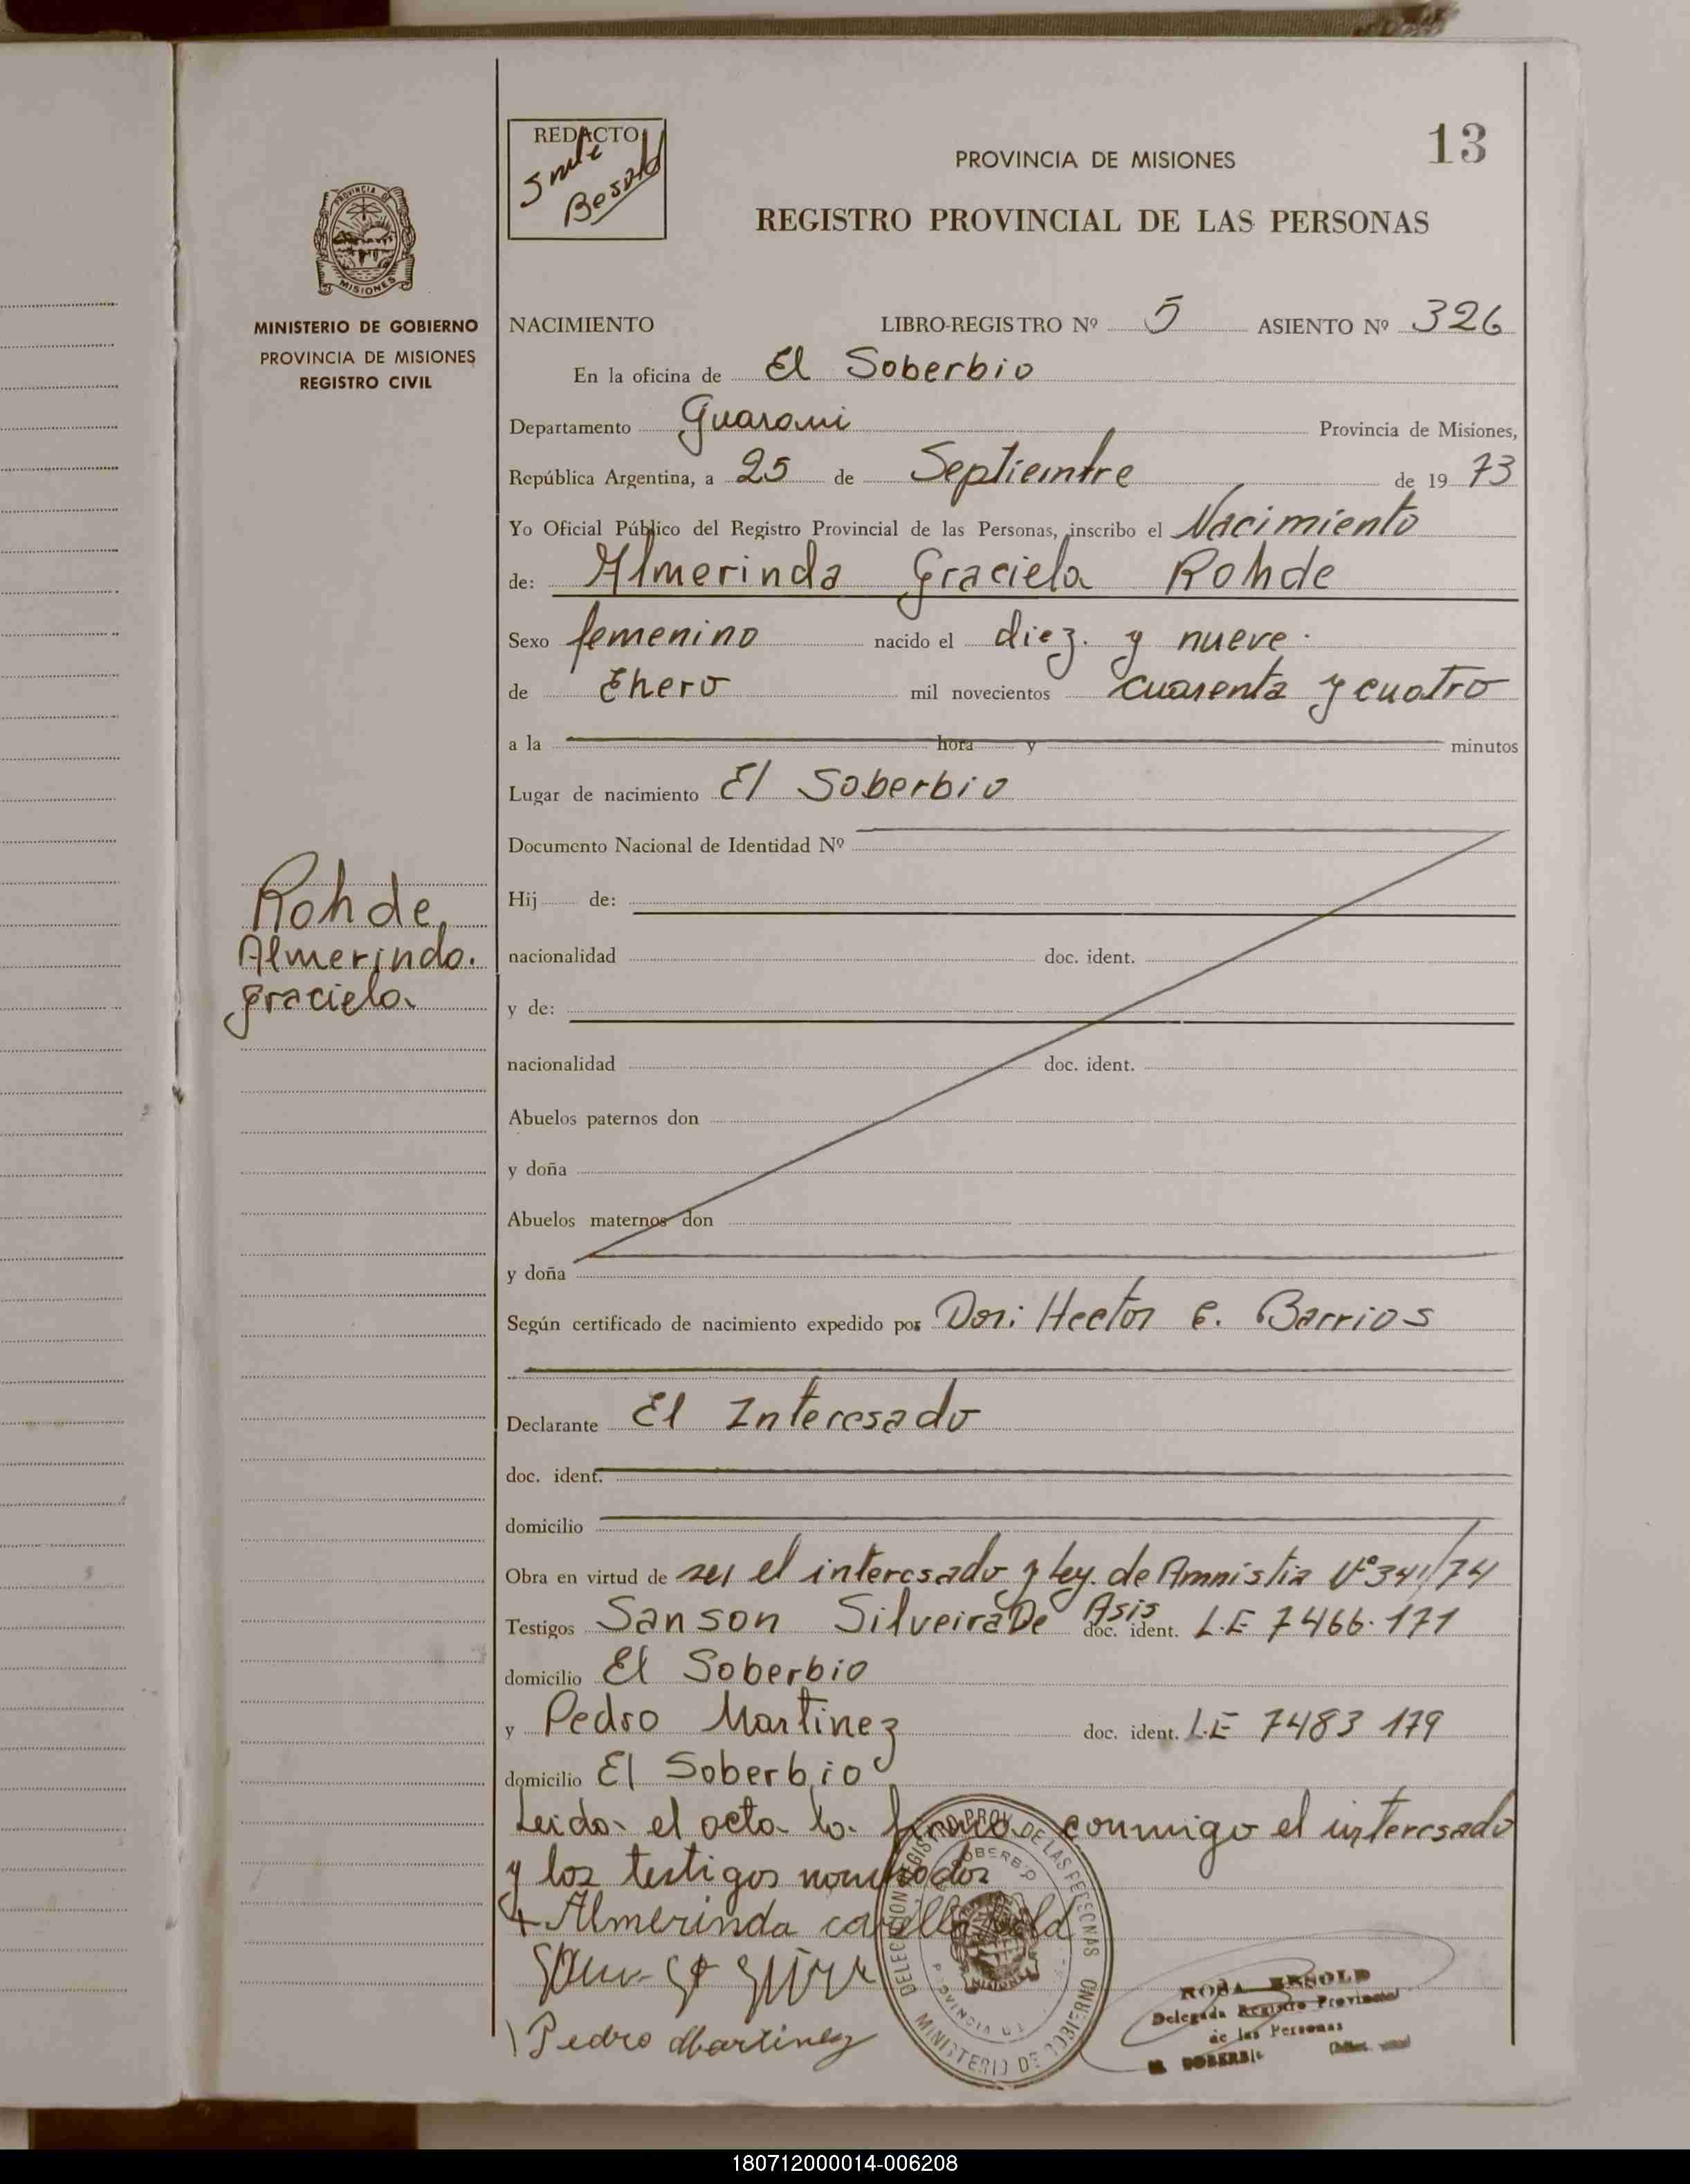 13
REDACTO
PROVINCIA DE MISIONES
REGISTRO PROVINCIAL DE LAS PERSONAS
PROVINCIA DE
MISIONES
MINISTERIO DE GOBIERNO
PROVINCIA DE MISIONES
REGISTRO CIVIL
NACIMIENTO LIBRO-REGISTRO Nº 5 ASIENTO Nº 326
En la oficina de El Soberbio
Departamento Guarani Provincia de Misiones,
República Argentina, a 25 de Septiembre de 19 73
Yo Oficial Público del Registro Provincial de las Personas, inscribo el Nacimiento
de: Almerinda Graciela Rohde
Sexo femenino nacido el diez y nueve
de Enero mil novecientos cuarenta y cuatro
a la hora y minutos
Lugar de nacimiento El Soberbio
Documento Nacional de Identidad Nº
Hij de:
Rohde
Almerinda
Graciela
nacionalidad doc. ident.
y de:
nacionalidad doc. ident.
Abuelos paternos don
y doña
Abuelos maternos don
y doña
Según certificado de nacimiento expedido por Dor: Hector E. Barrios
Declarante El Interesado
doc. ident.
domicilio
Obra en virtud de ser el interesado y Ley de Amnistia Nº 341/74
Testigos Sanson Silveira De Asis doc. ident. L.E 7466.171
domicilio El Soberbio
y Pedro Martinez doc. ident. L.E 7483 179
domicilio El Soberbio
Leida el acta la firma conmigo el interesado
y los testigos nombrados
Almerinda
Pedro Martinez
DELEGACION REGISTRO PROV. DE LAS PERSONAS
MINISTERIO DE GOBIERNO
ROSA
Delegada Registro Provincial
de las Personas
EL SOBERBIO
180712000014-006208